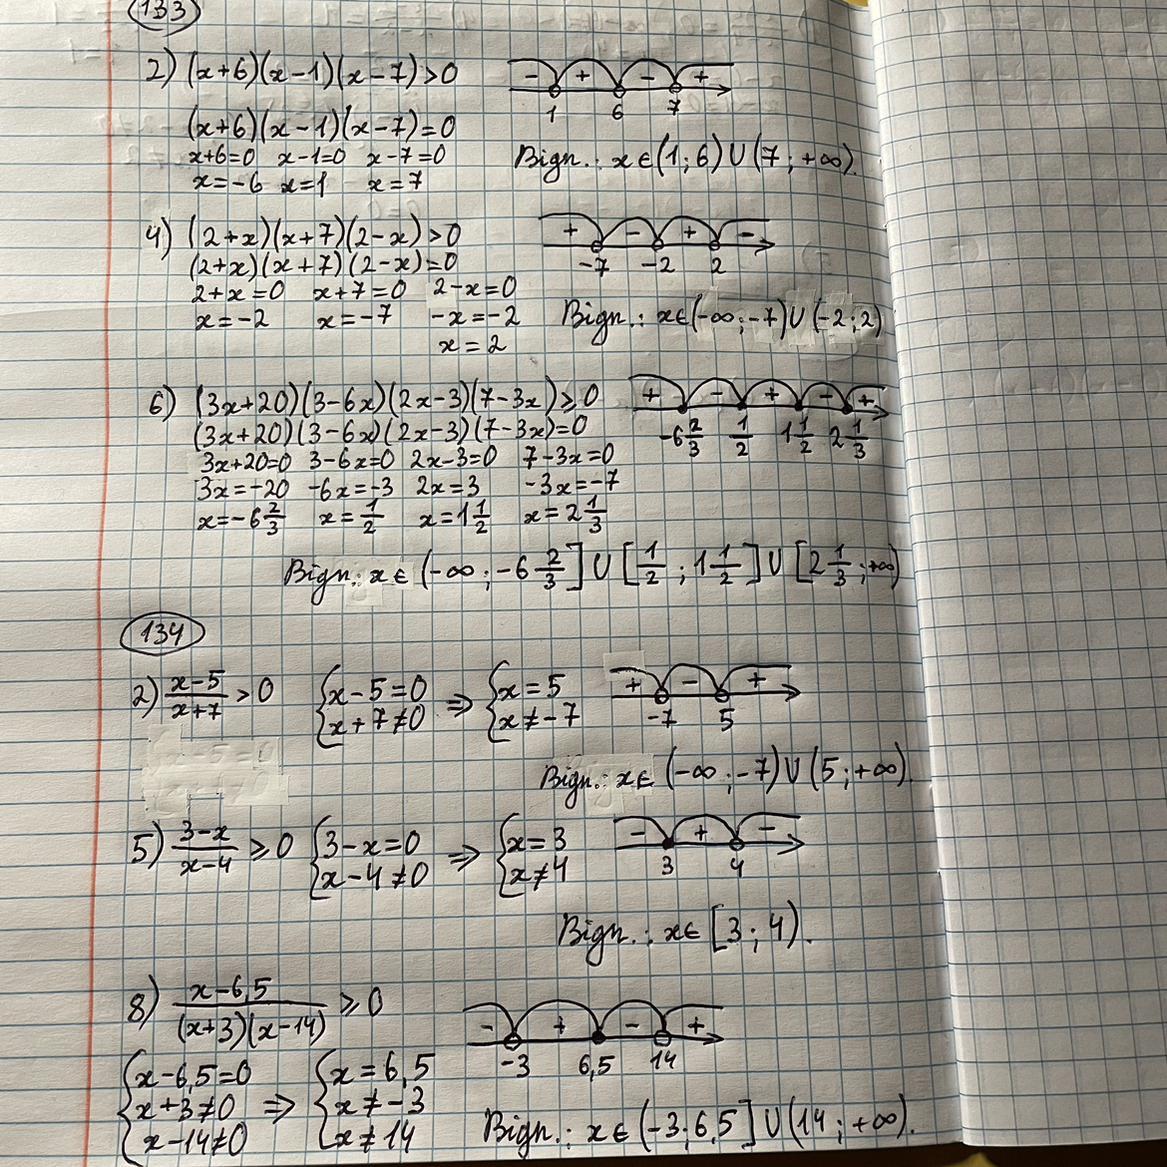 133
2) (x+6)(x-1)(x-7)>0
- + - +
1 6 7
(x+6)(x-1)(x-7)=0
x+6=0 x-1=0 x-7=0
x=-6 x=1 x=7
Відп.: x∈(1;6)∪(7;+∞).
4) (2+x)(x+7)(2-x)>0
+ - + -
-7 -2 2
(2+x)(x+7)(2-x)=0
2+x=0 x+7=0 2-x=0
x=-2 x=-7 -x=-2
x=2
Відп.: x∈(-∞;-7)∪(-2;2)
6) (3x+20)(3-6x)(2x-3)(7-3x)⩾0
+ - + - +
-6 2/3 1/2 1 1/2 2 1/3
(3x+20)(3-6x)(2x-3)(7-3x)=0
3x+20=0 3-6x=0 2x-3=0 7-3x=0
3x=-20 -6x=-3 2x=3 -3x=-7
x=-6 2/3 x=1/2 x=1 1/2 x=2 1/3
Відп.: x∈(-∞;-6 2/3]∪[1/2;1 1/2]∪[2 1/3;+∞)
134
2) (x-5)/(x+7)>0 {x-5=0 x+7≠0 ⇒ {x=5 x≠-7
+ - +
-7 5
Відп.: x∈(-∞;-7)∪(5;+∞).
5) (3-x)/(x-4)⩾0 {3-x=0 x-4≠0 ⇒ {x=3 x≠4
- + -
3 4
Відп.: x∈[3;4).
8) (x-6,5)/((x+3)(x-14))⩾0
- + - +
-3 6,5 14
{x-6,5=0 x+3≠0 x-14≠0 ⇒ {x=6,5 x≠-3 x≠14
Відп.: x∈(-3;6,5]∪(14;+∞).